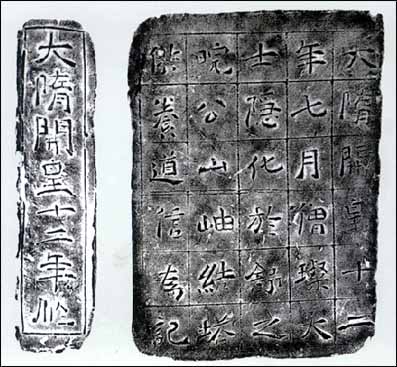 大隋開皇十二
年七月僧璨大
士隱化於舒之
皖公山岫結塔
供養道信為記
大隋開皇十二年作